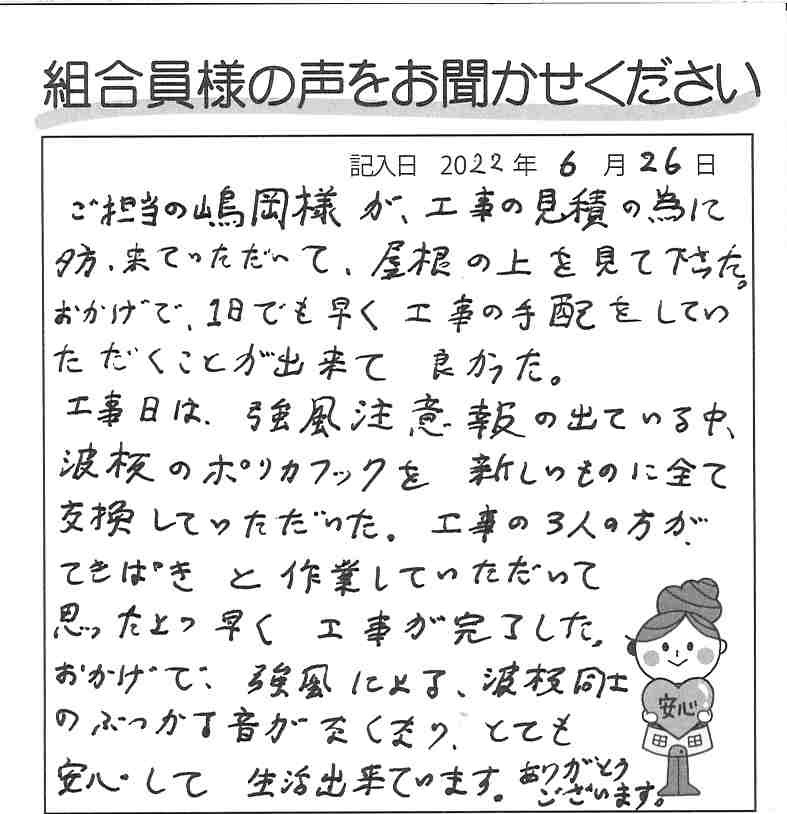 組合員様の声をお聞かせください
記入日 2022年 6月26日
ご担当の嶋岡様が、工事の見積の為に
夕方、来ていただいて、屋根の上を見て下さった。
おかげで、1日でも早く工事の手配をしてい
ただくことが出来て 良かった。
工事日は、強風注意報の出ている中、
波板のポリカフックを 新しいものに全て
交換していただいた。工事の3人の方が、
てきぱきと作業していただいて
思ったより早く 工事が完了した。
おかげで、強風による、波板同士
のぶつかる音がなくなり、とても
安心して 生活出来ています。ありがとう
ございます。
安心